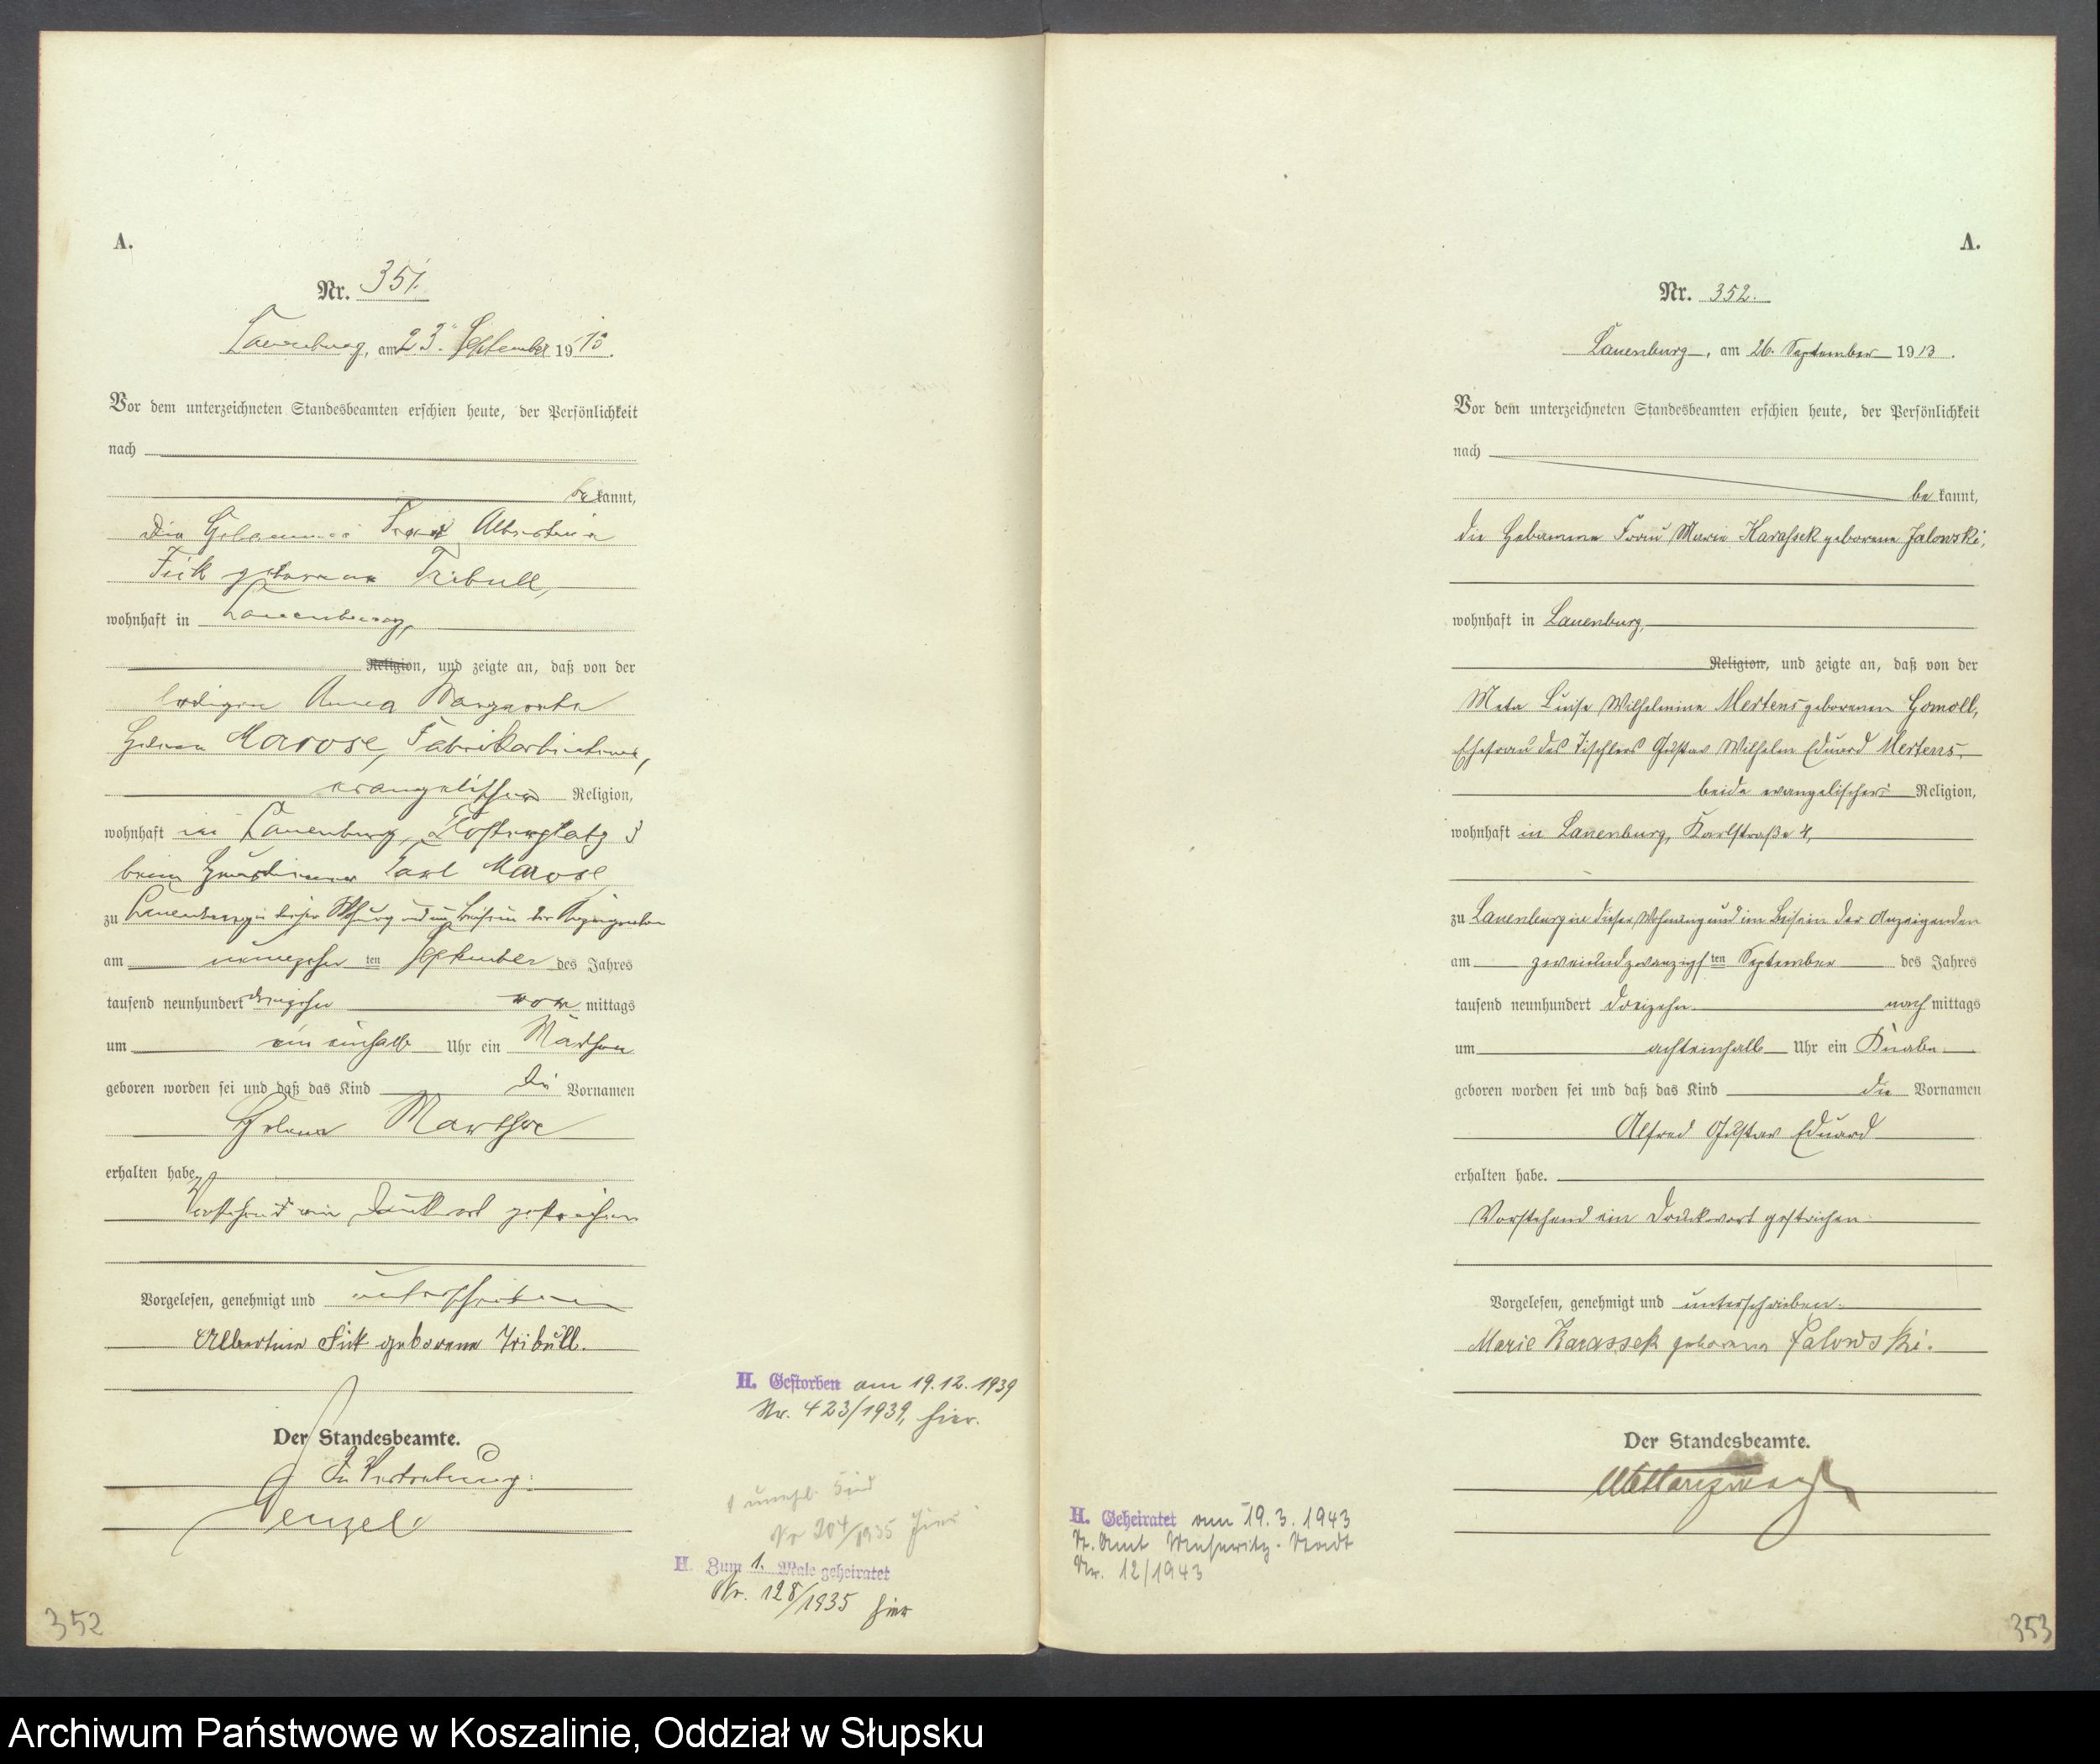 A.
Nr. 351.
Lauenburg, am 23. September 1913.
Vor dem unterzeichneten Standesbeamten erschien heute, der Persönlichkeit
nach
bekannt,
die Hebamme Frau Albertine
Fick geborene Tribull,
wohnhaft in Lauenburg,
Religion, und zeigte an, daß von der
ledigen Anna Margarete
Helene Marose, Fabrikarbeiterin,
evangelischer Religion,
wohnhaft in Lauenburg, Klosterplatz 3
beim Carl Marose
zu Lauenburg in dieser Wohnung und im Beisein der Anzeigenden
am neunzehnten September des Jahres
tausend neunhundert dreizehn vor mittags
um ein einhalb Uhr ein Mädchen
geboren worden sei und daß das Kind die Vornamen
Helene Marthe
erhalten habe
Vorstehend ein Druckwort gestrichen
Vorgelesen, genehmigt und unterschrieben
Albertine Fick geborene Tribull.
Der Standesbeamte.
In Vertretung:
Wenzel
H. Gestorben am 19.12.1939
Nr. 423/1939, hier.
1 unehel. Kind
Nr 204/1935 hier
H. Zum 1. Male geheiratet
Nr. 128/1935 hier
352
A.
Nr. 352.
Lauenburg, am 26. September 1913.
Vor dem unterzeichneten Standesbeamten erschien heute, der Persönlichkeit
nach
bekannt,
die Hebamme Frau Marie Karassek geborene Jalowski,
wohnhaft in Lauenburg,
Religion, und zeigte an, daß von der
Meta Luise Wilhelmine Mertens geborenen Gomoll,
Ehefrau des Tischlers Gustav Wilhelm Eduard Mertens,
beide evangelischer Religion,
wohnhaft in Lauenburg, Karlstraße 4,
zu Lauenburg in dieser Wohnung und im Beisein der Anzeigenden
am zweiundzwanzigsten September des Jahres
tausend neunhundert dreizehn nach mittags
um achteinhalb Uhr ein Knabe
geboren worden sei und daß das Kind die Vornamen
Alfred Gustav Eduard
erhalten habe.
Vorstehend ein Druckwort gestrichen
Vorgelesen, genehmigt und unterschrieben.
Marie Karassek geborene Jalowski.
Der Standesbeamte.
H. Geheiratet am 19.3.1943
St. Amt Meuselwitz-Stadt
Nr. 12/1943
353
Archiwum Państwowe w Koszalinie, Oddział w Słupsku